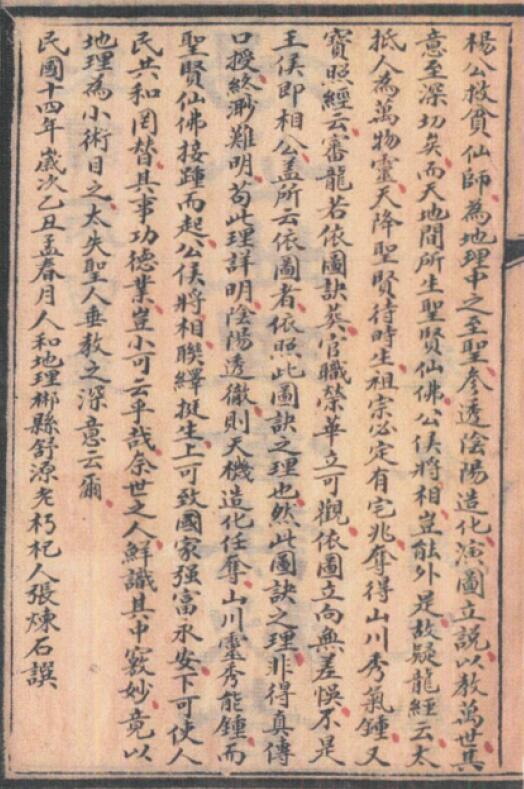 楊公救貧仙師為地理中之至聖參透陰陽造化演圖立說以教萬世其
意至深切矣而天地間所生聖賢仙佛公侯將相豈能外是故疑龍經云太
抵人為萬物靈天降聖賢待時生祖宗必定有宅兆奪得山川秀氣鍾又
寶照經云審龍若依圖訣葬官職榮華立可觀依圖立向無差悞不是
王侯即相公蓋所云依圖者依照此圖訣之理也然此圖訣之理非得真傳
口授終渺難明苟此理詳明陰陽透徹則天機造化任奪山川靈秀能鍾而
聖賢仙佛接踵而起公侯將相聯繹挺生上可致國家强富永安下可使人
民共和罔替其事功德業豈小可云乎哉余世之人鮮識其中竅妙竟以
地理為小術目之太失聖人垂教之深意云爾
民國十四年歲次乙丑孟春月人和地理郴縣舒源老朽杞人張煉石譔